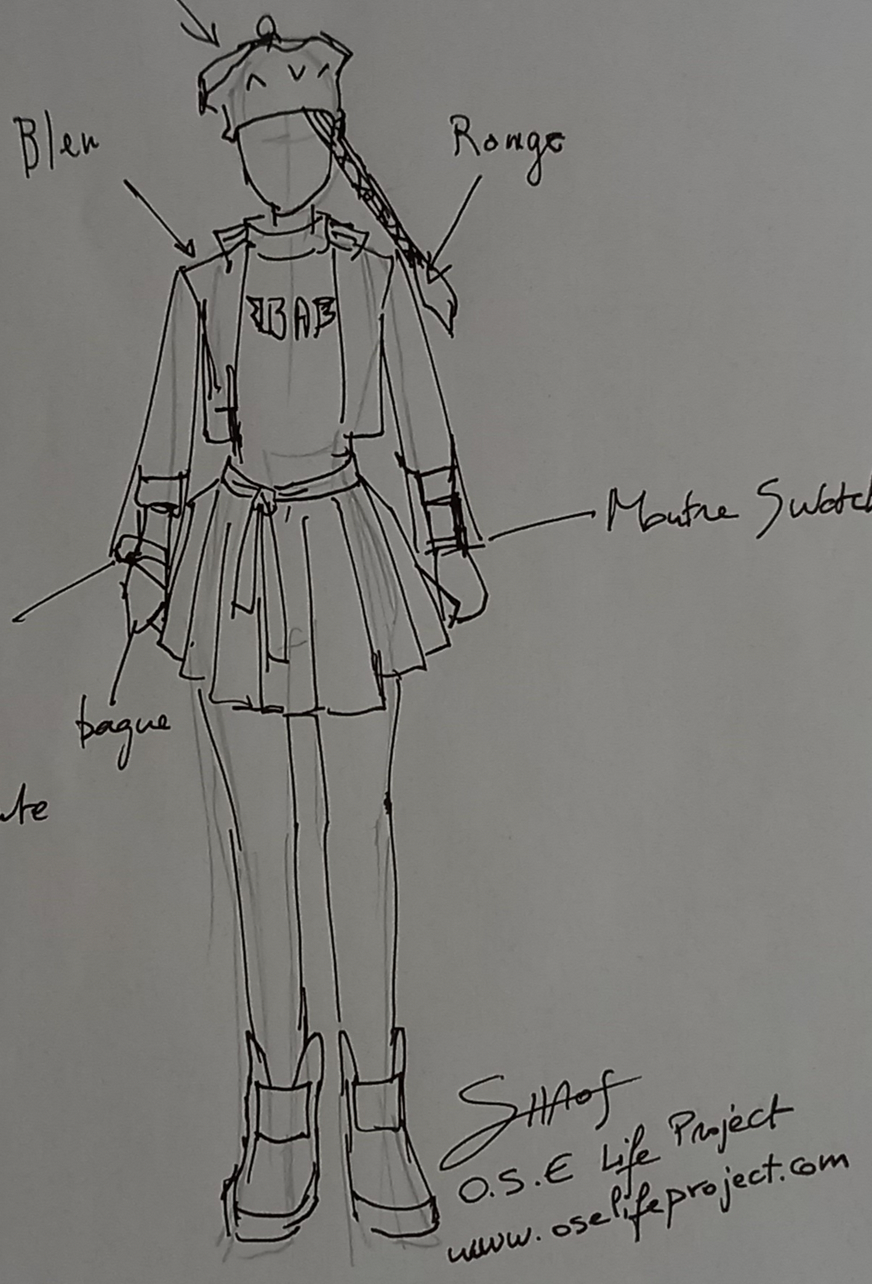 Bleu
Rouge
BAB
Montre Swatch
bague
O.S.E Life Project
www.oselifeproject.com